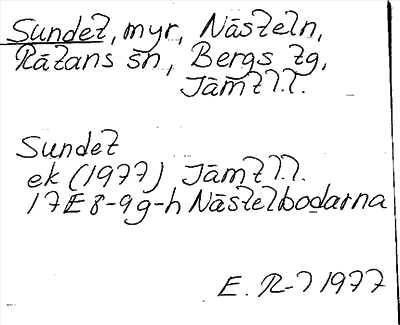 Sundet, myr, Nästeln,
Rätans sn, Bergs tg,
Jämtl.
Sundet
ek (1977) Jämtl.
17E 8-9g-h Nästelbodarna
E. R-l 1977